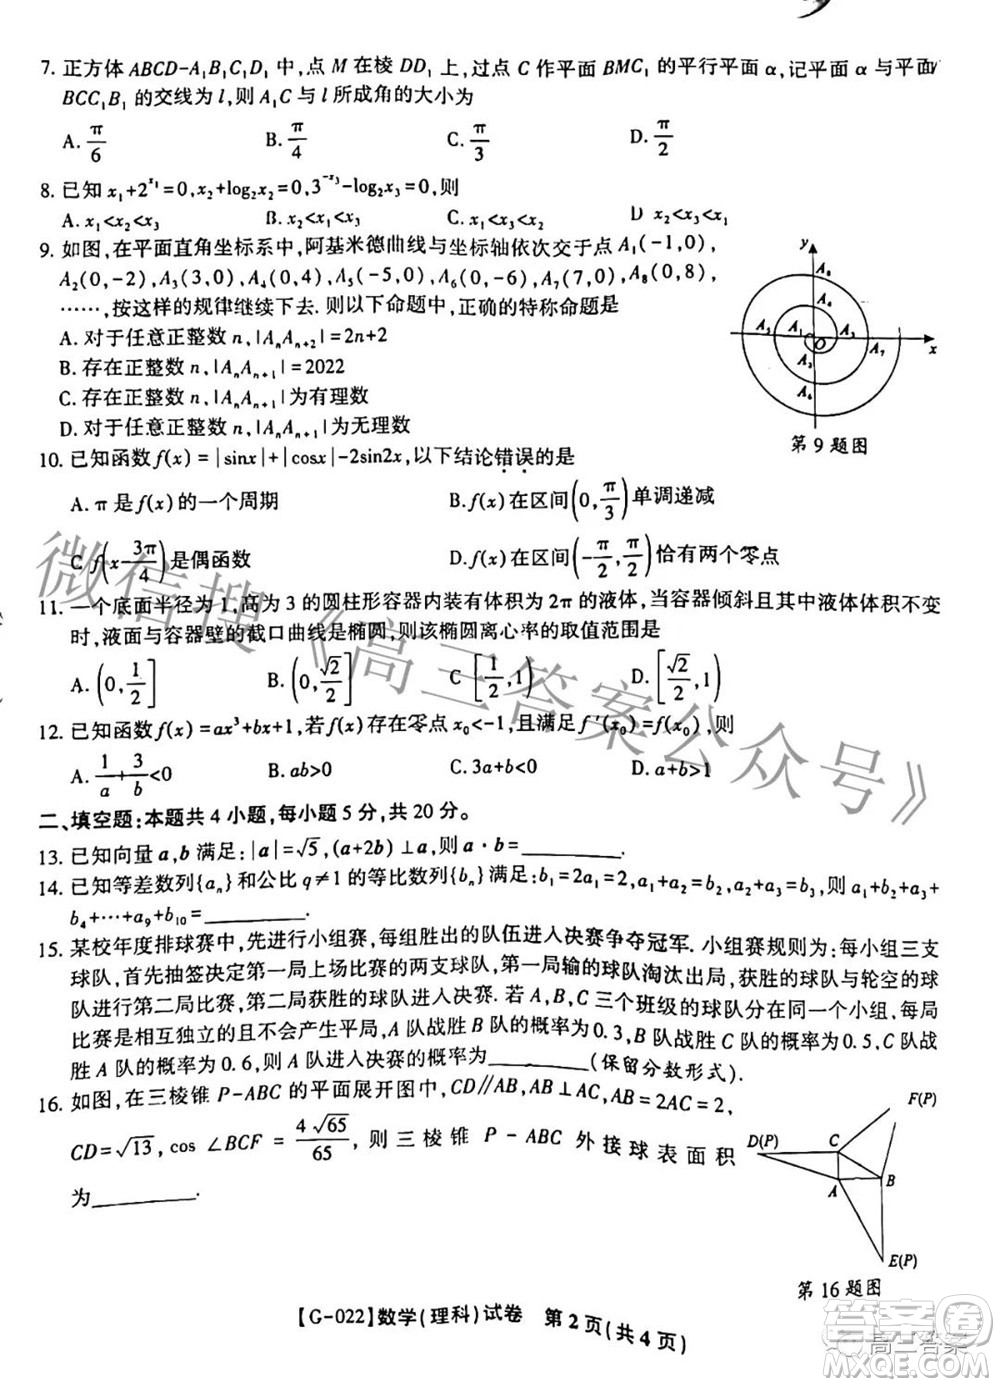 7. 正方体 ABCD-A₁B₁C₁D₁ 中,点 M 在棱 DD₁ 上,过点 C 作平面 BMC₁ 的平行平面 α,记平面 α 与平面
BCC₁B₁ 的交线为 l,则 A₁C 与 l 所成角的大小为
A. π/6 B. π/4 C. π/3 D. π/2
8. 已知 x₁+2^(x₁)=0, x₂+log₂x₂=0, 3^(-x₃)-log₂x₃=0,则
A. x₁<x₂<x₃ B. x₂<x₁<x₃ C. x₁<x₃<x₂ D. x₂<x₃<x₁
9. 如图,在平面直角坐标系中,阿基米德曲线与坐标轴依次交于点 A₁(-1,0),
A₂(0,-2),A₃(3,0),A₄(0,4),A₅(-5,0),A₆(0,-6),A₇(7,0),A₈(0,8),
……,按这样的规律继续下去. 则以下命题中,正确的特称命题是
A. 对于任意正整数 n,|AₙAₙ₊₂|=2n+2
B. 存在正整数 n,|AₙAₙ₊₁|=2022
C. 存在正整数 n,|AₙAₙ₊₁|为有理数
D. 对于任意正整数 n,|AₙAₙ₊₁|为无理数
y A₈ A₄ A₅ A₁ A₃ O A₇ x A₂ A₆
第 9 题图
10. 已知函数 f(x)=|sinx|+|cosx|-2sin2x,以下结论错误的是
A. π 是 f(x)的一个周期 B. f(x)在区间(0,π/3)单调递减
C f(x-3π/4)是偶函数 D. f(x)在区间(-π/2,π/2)恰有两个零点
11. 一个底面半径为 1,高为 3 的圆柱形容器内装有体积为 2π 的液体,当容器倾斜且其中液体体积不变
时,液面与容器壁的截口曲线是椭圆,则该椭圆离心率的取值范围是
A. (0,1/2] B. (0,√2/2] C [1/2,1) D. [√2/2,1)
12. 已知函数 f(x)=ax³+bx+1,若 f(x)存在零点 x₀<-1,且满足 f′(x₀)=f(x₀),则
A. 1/a+3/b<0 B. ab>0 C. 3a+b<0 D. a+b>1
二、填空题:本题共 4 小题,每小题 5 分,共 20 分。
13. 已知向量 a,b 满足:|a|=√5,(a+2b)⊥a,则 a·b=________.
14. 已知等差数列{aₙ}和公比 q≠1 的等比数列{bₙ}满足:b₁=2a₁=2,a₁+a₂=b₂,a₂+a₄=b₃,则 a₁+a₃+
b₄+…+a₉+b₁₀=________.
15. 某校年度排球赛中,先进行小组赛,每组胜出的队伍进入决赛争夺冠军. 小组赛规则为:每小组三支
球队,首先抽签决定第一局上场比赛的两支球队,第一局输的球队淘汰出局,获胜的球队与轮空的球
队进行第二局比赛,第二局获胜的球队进入决赛. 若 A,B,C 三个班级的球队分在一个小组,每局
比赛是相互独立的且不会产生平局,A 队战胜 B 队的概率为 0.3,B 队战胜 C 队的概率为 0.5,C 队战
胜 A 队的概率为 0.6,则 A 队进入决赛的概率为________(保留分数形式).
16. 如图,在三棱锥 P-ABC 的平面展开图中,CD∥AB,AB⊥AC,AB=2AC=2,
CD=√13, cos∠BCF=4√65/65, 则三棱锥 P-ABC 外接球表面积
为________.
F(P) D(P) C A B E(P)
第 16 题图
【G-022】数学(理科)试卷 第 2 页(共 4 页)
微信搜《高三答案公众号》
高三答案
答案圈
MXQE.COM